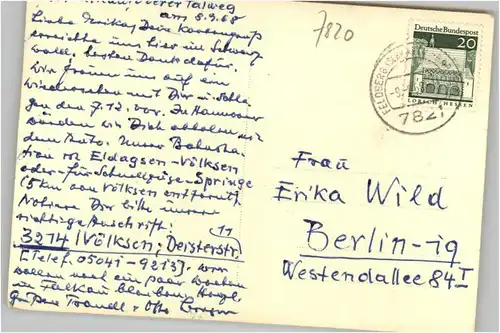 Oberer Talweg
am 8.9.68
Liebe Erika, Dein Kartengruß
erreichte uns hier im Schwarz-
wald, besten Dank dafür.
Wir freuen uns auf ein
Wiedersehen mit Dir
den 7.12. vor. In Hannover
würden wir Dich abholen mit
dem Auto. Unser Bahnsta-
tion ist Eldagsen-Völksen
oder für Schnellzüge Springe
(5 km von Völksen entfernt).
Notiere Dir bitte unsere
richtige Anschrift: (11
3214 Völksen, Deisterstr.
(Telef. 05041-9213). Wir
wollen noch ein paar Wochen
in Falkau bleiben. Herzl.
Grüße Traudl + Otto
7820
Deutsche Bundespost
20
LORSCH/HESSEN
FELDBERG (SCHWARZW)
7821
Frau
Erika Wild
Berlin-19
Westendallee 84 I